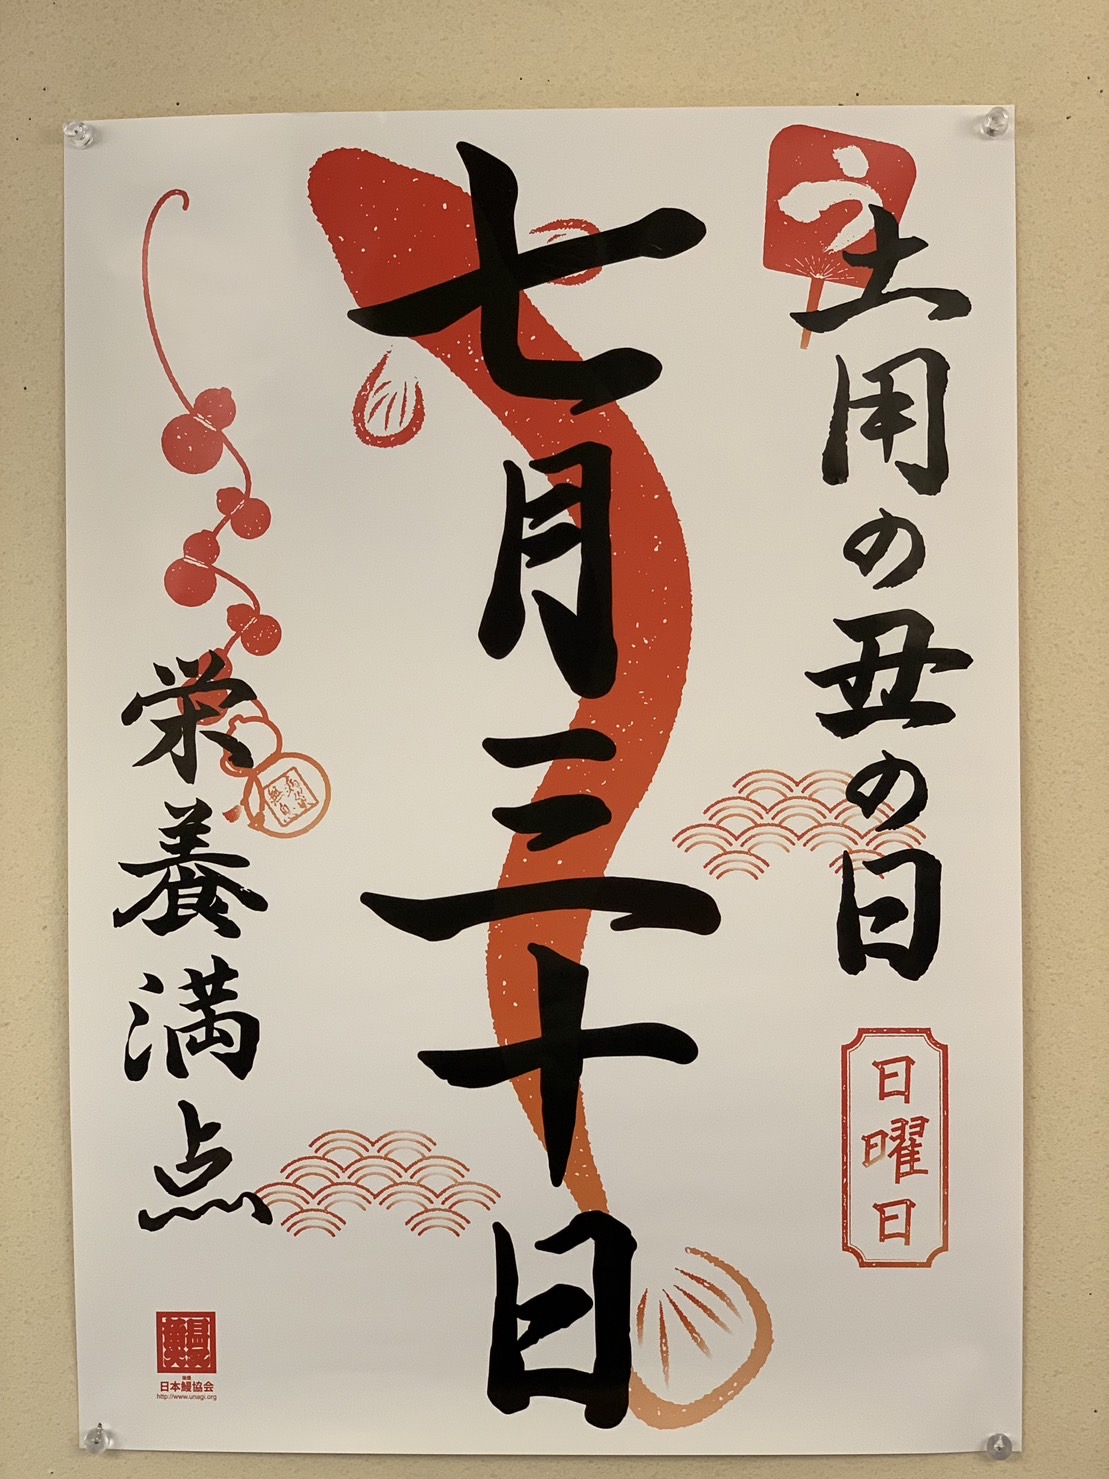 土用の丑の日
日曜日
七月三十日
栄養満点
日本鰻協会
http://www.unagi.org